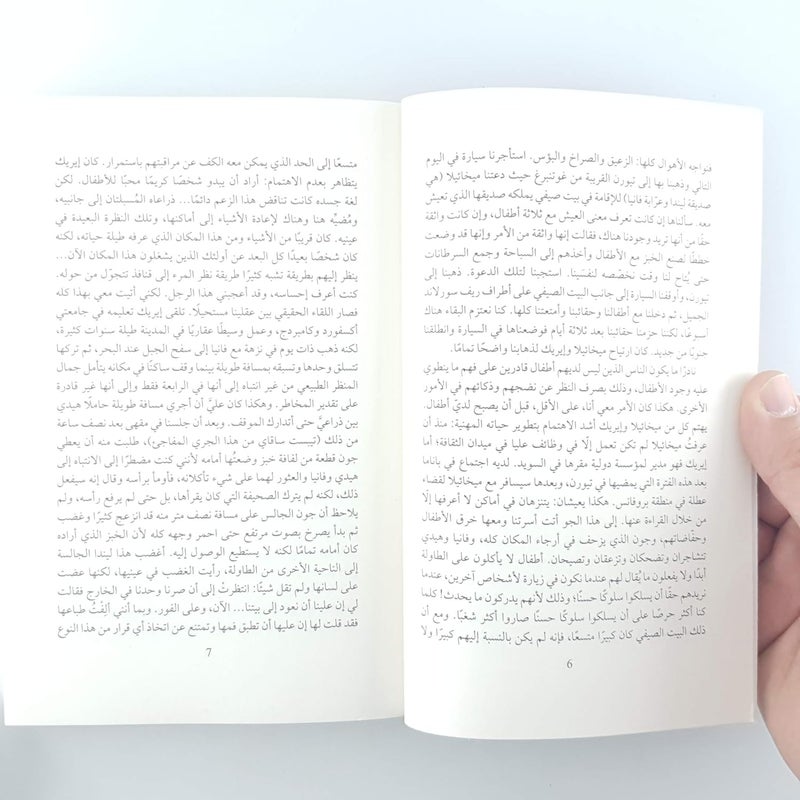 فنواجه الأهوال كلها: الزعيق والصراخ والبؤس. استأجرنا سيارة في اليوم
التالي وذهبنا بها إلى تيورن القريبة من غوتنبرغ حيث دعتنا ميخائيلا (هي
صديقة ليندا وعرابة فانيا) للإقامة في بيت صيفي يملكه صديقها الذي تعيش
معه. سألناها إن كانت تعرف معنى العيش مع ثلاثة أطفال، وإن كانت واثقة
حقًا من أنها تريد وجودنا هناك، فقالت إنها واثقة من الأمر وإنها قد وضعت
خططًا لصنع الخبز مع الأطفال وأخذهم إلى السباحة وجمع السرطانات
حتى يُتاح لنا وقت نخصّصه لنفسَينا. استجبنا لتلك الدعوة. ذهبنا إلى
تيورن، وأوقفنا السيارة إلى جانب البيت الصيفي على أطراف ريف سورلاند
الجميل، ثم دخلنا مع أطفالنا وحقائبنا وأمتعتنا كلها. كنا نعتزم البقاء هناك
أسبوعًا، لكننا حزمنا حقائبنا بعد ثلاثة أيام فوضعناها في السيارة وانطلقنا
جنوبًا من جديد. كان ارتياح ميخائيلا وإيريك لذهابنا واضحًا تمامًا.
نادرًا ما يكون الناس الذين ليس لديهم أطفال قادرين على فهم ما ينطوي
عليه وجود الأطفال، وذلك بصرف النظر عن نضجهم وذكائهم في الأمور
الأخرى. هكذا كان الأمر معي أنا، على الأقل، قبل أن يصبح لديّ أطفال.
يهتم كل من ميخائيلا وإيريك أشد الاهتمام بتطوير حياته المهنية: منذ أن
عرفتُ ميخائيلا لم تكن تعمل إلّا في وظائف عليا في ميدان الثقافة؛ أما
إيريك فهو مدير لمؤسسة دولية مقرها في السويد. لديه اجتماع في باناما
بعد هذه الفترة التي يمضيها في تيورن، وبعدها سيسافر مع ميخائيلا لقضاء
عطلة في منطقة بروفانس. هكذا يعيشان: يتنزهان في أماكن لا أعرفها إلّا
من خلال القراءة عنها. إلى هذا الجو أتت أسرتنا ومعها خرق الأطفال
وحفاضاتهم، وجون الذي يزحف في أرجاء المكان كله، وفانيا وهيدي
تتشاجران وتضحكان وتزعقان وتصيحان. أطفال لا يأكلون على الطاولة
أبدًا ولا يفعلون ما يُقال لهم عندما نكون في زيارة لأشخاص آخرين، عندما
نريدهم حقًا أن يسلكوا سلوكًا حسنًا؛ وذلك لأنهم يدركون ما يحدث! كلما
كنا أكثر حرصًا على أن يسلكوا سلوكًا حسنًا صاروا أكثر شغبًا. ومع أن
ذلك البيت الصيفي كان كبيرًا متسعًا، فإنه لم يكن بالنسبة إليهم كبيرًا ولا
6
متسعًا إلى الحد الذي يمكن معه الكف عن مراقبتهم باستمرار. كان إيريك
يتظاهر بعدم الاهتمام: أراد أن يبدو شخصًا كريمًا محبًا للأطفال. لكن
لغة جسده كانت تناقض هذا الزعم دائمًا... ذراعاه المُسبلتان إلى جانبيه،
ومُضيِّه هنا وهناك لإعادة الأشياء إلى أماكنها، وتلك النظرة البعيدة في
عينيه. كان قريبًا من الأشياء ومن هذا المكان الذي عرفه طيلة حياته، لكنه
كان شخصًا بعيدًا كل البعد عن أولئك الذين يشغلون هذا المكان الآن...
ينظر إليهم بطريقة تشبه كثيرًا طريقة نظر المرء إلى قنافذ تتجوّل من حوله.
كنت أعرف إحساسه، وقد أعجبني هذا الرجل. لكني أتيت معي بهذا كله
فصار اللقاء الحقيقي بين عقلينا مستحيلًا. تلقى إيريك تعليمه في جامعتي
أكسفورد وكامبردج، وعمل وسيطًا عقاريًا في المدينة طيلة سنوات كثيرة،
لكنه ذهب ذات يوم في نزهة مع فانيا إلى سفح الجبل عند البحر، ثم تركها
تتسلق وحدها وتسبقه بمسافة طويلة بينما وقف ساكنًا في مكانه يتأمل جمال
المنظر الطبيعي من غير انتباه إلى أنها في الرابعة فقط وإلى أنها غير قادرة
على تقدير المخاطر. وهكذا كان عليَّ أن أجري مسافة طويلة حاملًا هيدي
بين ذراعيَّ حتى أتدارك الموقف. وبعد أن جلسنا في مقهى بعد نصف ساعة
من ذلك (تيبست ساقاي من هذا الجري المفاجئ)، طلبت منه أن يعطي
جون قطعة من لفافة خبز وضعتُها أمامه لأنني كنت مضطرًا إلى الانتباه إلى
هيدي وفانيا والعثور لهما على شيء تأكلانه. فأومأ برأسه وقال إنه سيفعل
ذلك، لكنه لم يترك الصحيفة التي كان يقرأها، بل حتى لم يرفع رأسه، ولم
يلاحظ أن جون الجالس على مسافة نصف متر منه قد انزعج كثيرًا وغضب
ثم بدأ يصرخ بصوت مرتفع حتى احمر وجهه كله لأن الخبز الذي أراده
كان أمامه تمامًا لكنه لا يستطيع الوصول إليه. أغضب هذا ليندا الجالسة
إلى الناحية الأخرى من الطاولة، رأيت الغضب في عينيها، لكنها عضت
على لسانها ولم تقل شيئًا: انتظرتْ إلى أن صرنا وحدنا في الخارج فقالت
لي إن علينا أن نعود إلى بيتنا... الآن، وعلى الفور. وبما أنني ألِفْتُ طباعها
فقد قلت لها إن عليها أن تطبق فمها وتمتنع عن اتخاذ أي قرار من هذا النوع
7